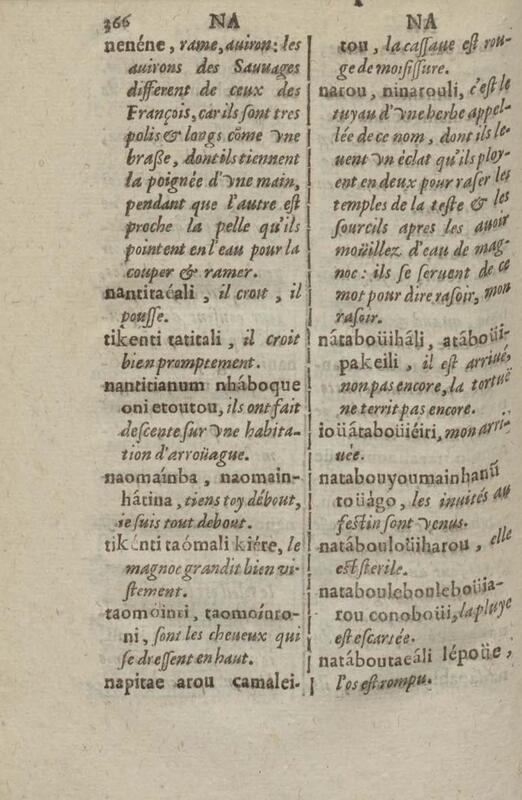 366 NA
nenéne, rame, auiron: les
auirons des Sauuages
different de ceux des
François, car ils sont tres
polis & longs cõme vne
braße, dont ils tiennent
la poignée d'vne main,
pendant que l'autre est
proche la pelle qu'ils
pointent en l'eau pour la
couper & ramer.
nantitaéali, il croit, il
pousse.
tikenti tatitali, il croit
bien promptement.
nantitianum nháboque
oni etoutou, ils ont fait
descente sur vne habita-
tion d'arroüague.
naomaínba, naomain-
hátina, tiens toy débout,
ie suis tout debout.
tikénti taómali kiére, le
magnoc grandit bien vi-
stement.
taomóinti, taomoínto-
ni, sont les cheueux qui
se dressent en haut.
napitae arou camalei-
NA
tou, la cassaue est rou-
ge de moisissure.
narou, ninarouli, c'est le
tuyau d'vne herbe appel-
lée de ce nom, dont ils le-
uent vn éclat qu'ils ploy-
ent en deux pour raser les
temples de la teste & les
sourcils apres les auoir
moüillez d'eau de mag-
noc: ils se seruent de ce
mot pour dire rasoir, mon
rasoir.
nátaboüiháli, atáboüi-
pakeili, il est arriué,
non pas encore, la tortuë
ne territ pas encore.
ioüátaboüiéiri, mon arri-
uée.
natabouyoumainhanũ
toüágo, les inuités au
festin sont venus.
natábouloüiharou, elle
est sterile.
nataboulebouleboüia-
rou conoboüi, la pluye
est escartée.
natáboutaeáli lépoüe,
l'os est rompu.